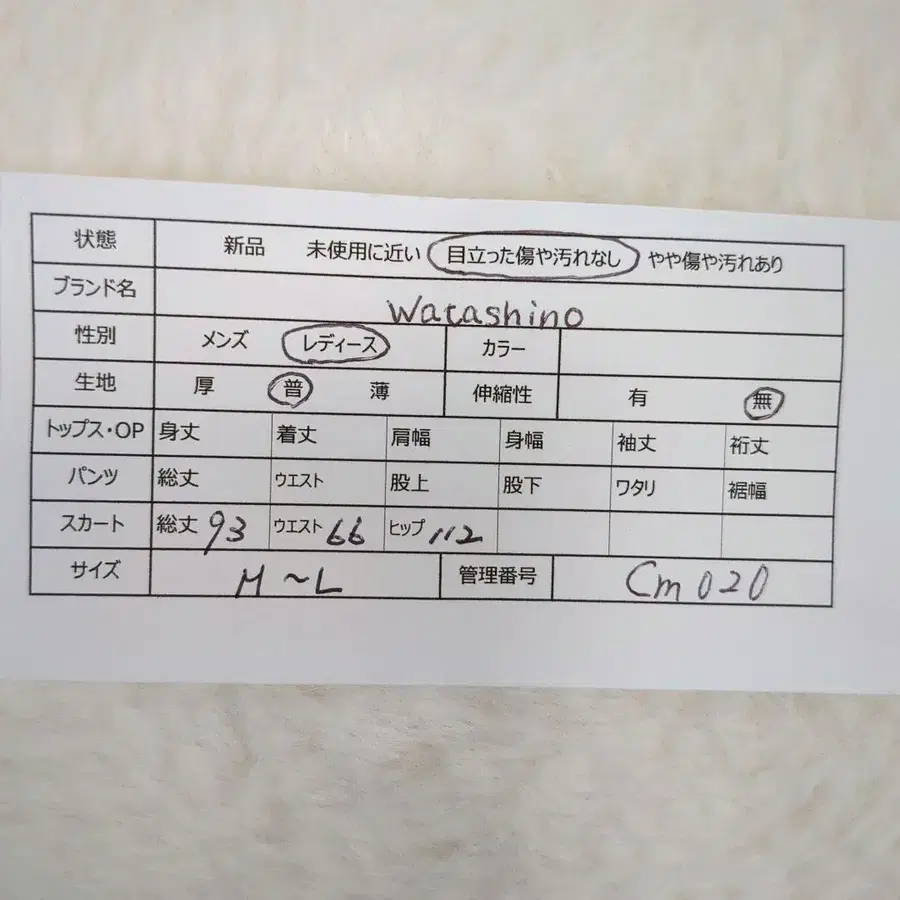 状態 新品 未使用に近い 目立った傷や汚れなし やや傷や汚れあり
ブランド名 Watashino
性別 メンズ レディース カラー
生地 厚 普 薄 伸縮性 有 無
トップス・OP 身丈 着丈 肩幅 身幅 袖丈 裄丈
パンツ 総丈 ウエスト 股上 股下 ワタリ 裾幅
スカート 総丈 93 ウエスト 66 ヒップ 112
サイズ M～L 管理番号 Cm020